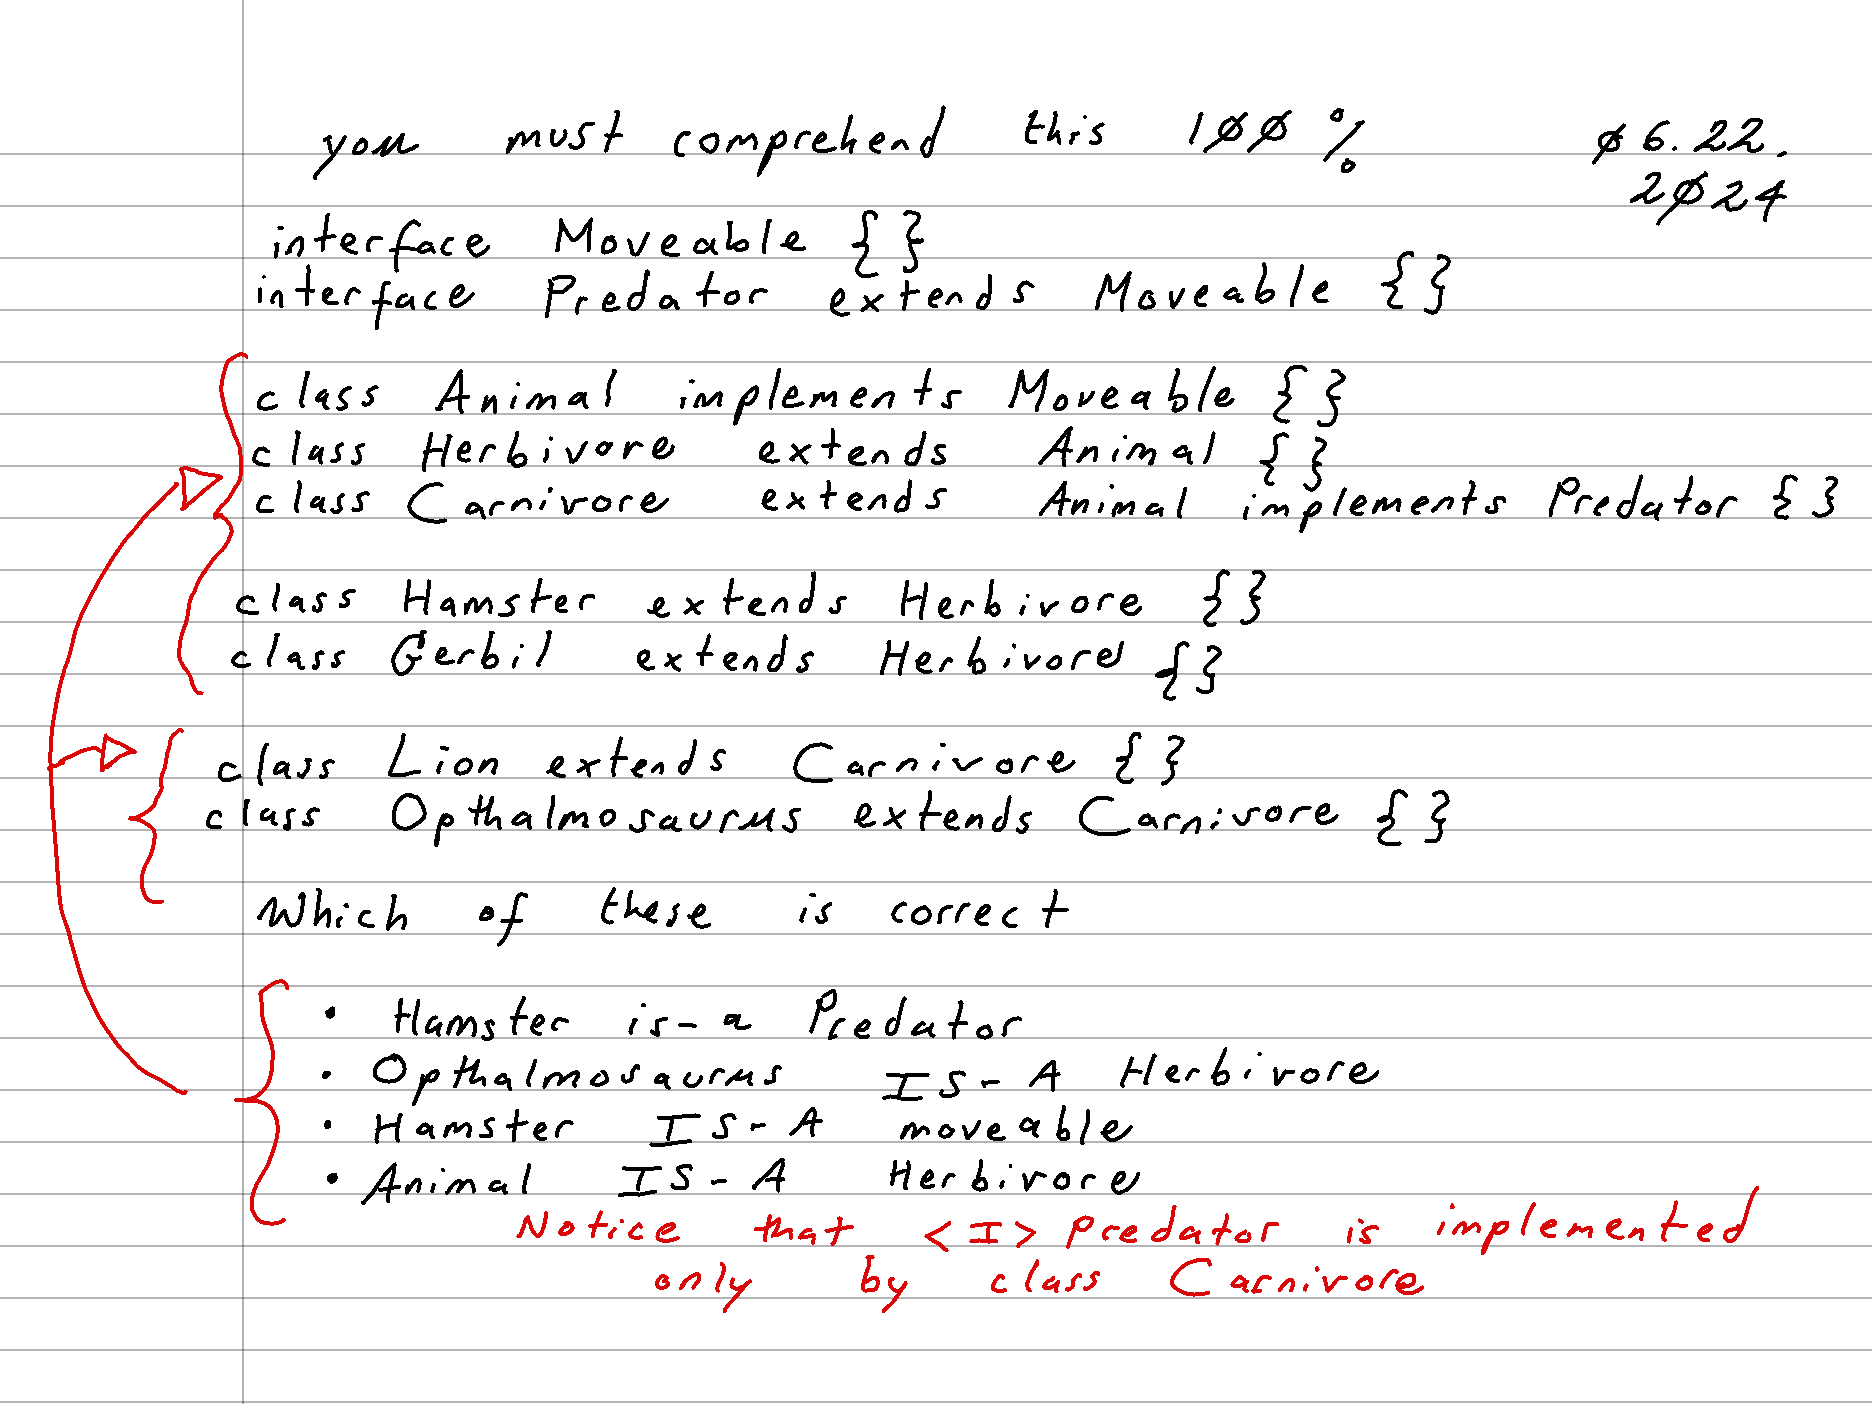 you must comprehend this 100% 06.22.
2024
interface Moveable {}
interface Predator extends Moveable {}
class Animal implements Moveable {}
class Herbivore extends Animal {}
class Carnivore extends Animal implements Predator {}
class Hamster extends Herbivore {}
class Gerbil extends Herbivore {}
class Lion extends Carnivore {}
class Opthalmosaurus extends Carnivore {}
Which of these is correct
• Hamster is-a Predator
• Opthalmosaurus IS-A Herbivore
• Hamster IS-A moveable
• Animal IS-A Herbivore
Notice that <I> Predator is implemented
only by class Carnivore